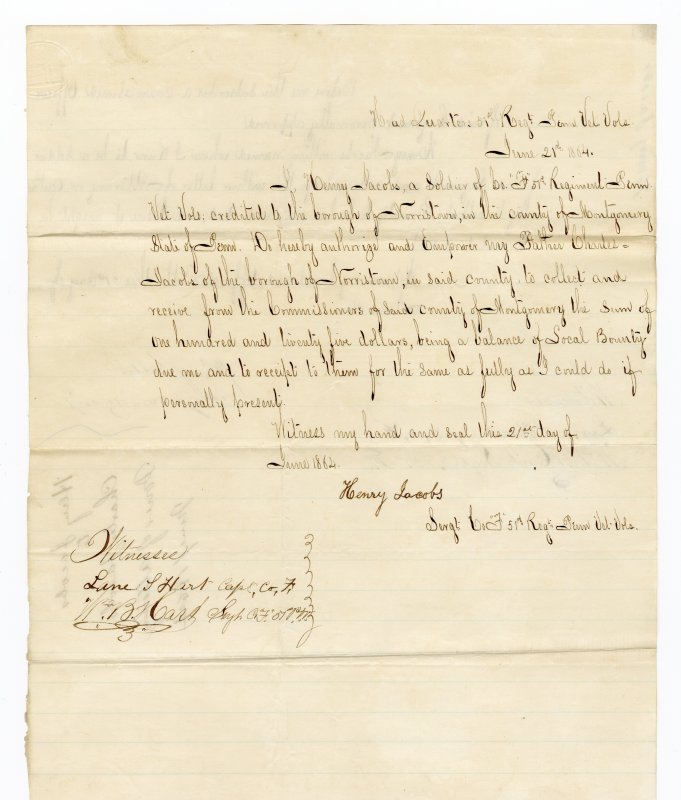 Head Quarters 51st Regt Penn Vet Vols.
June 21st 1864.
I, Henry Jacobs, a Soldier of Co. "F" 51st Regiment Penn.
Vet Vols: credited to the borough of Norristown, in the county of Montgomery
State of Penn. Do hereby authorize and Empower my Father Charles=
Jacobs of the borough of Norristown, in said county to collect and
receive from the Commissioners of said county of Montgomery the sum of
one hundred and twenty five dollars, being a balance of Local Bounty
due me and to receipt to them for the same as fully as I could do if
personally present.
Witness my hand and seal this 21st day of
June 1864.
Henry Jacobs
Sergt Co "F" 51st Regt Penn Vet Vols.
Witnesses
Hart Capt, Co, F.
W. B. Hart Sergt Co F. 51